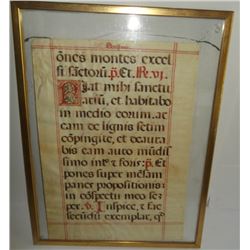 ōnes montes excel
si sāctorū. p̄. Et. R. VI.
Fiat mihi sanctu
ariū, et habitabo
in medio eorum. ar
cam de lignis setim
cōpingite, et deaura
bis eam auro mūdis
simo intꝰ & foris: p̄. Et
pones super mēsam
panes propositionis:
in ea. V. Inspice, & fac
secūdū exemplar, qđ